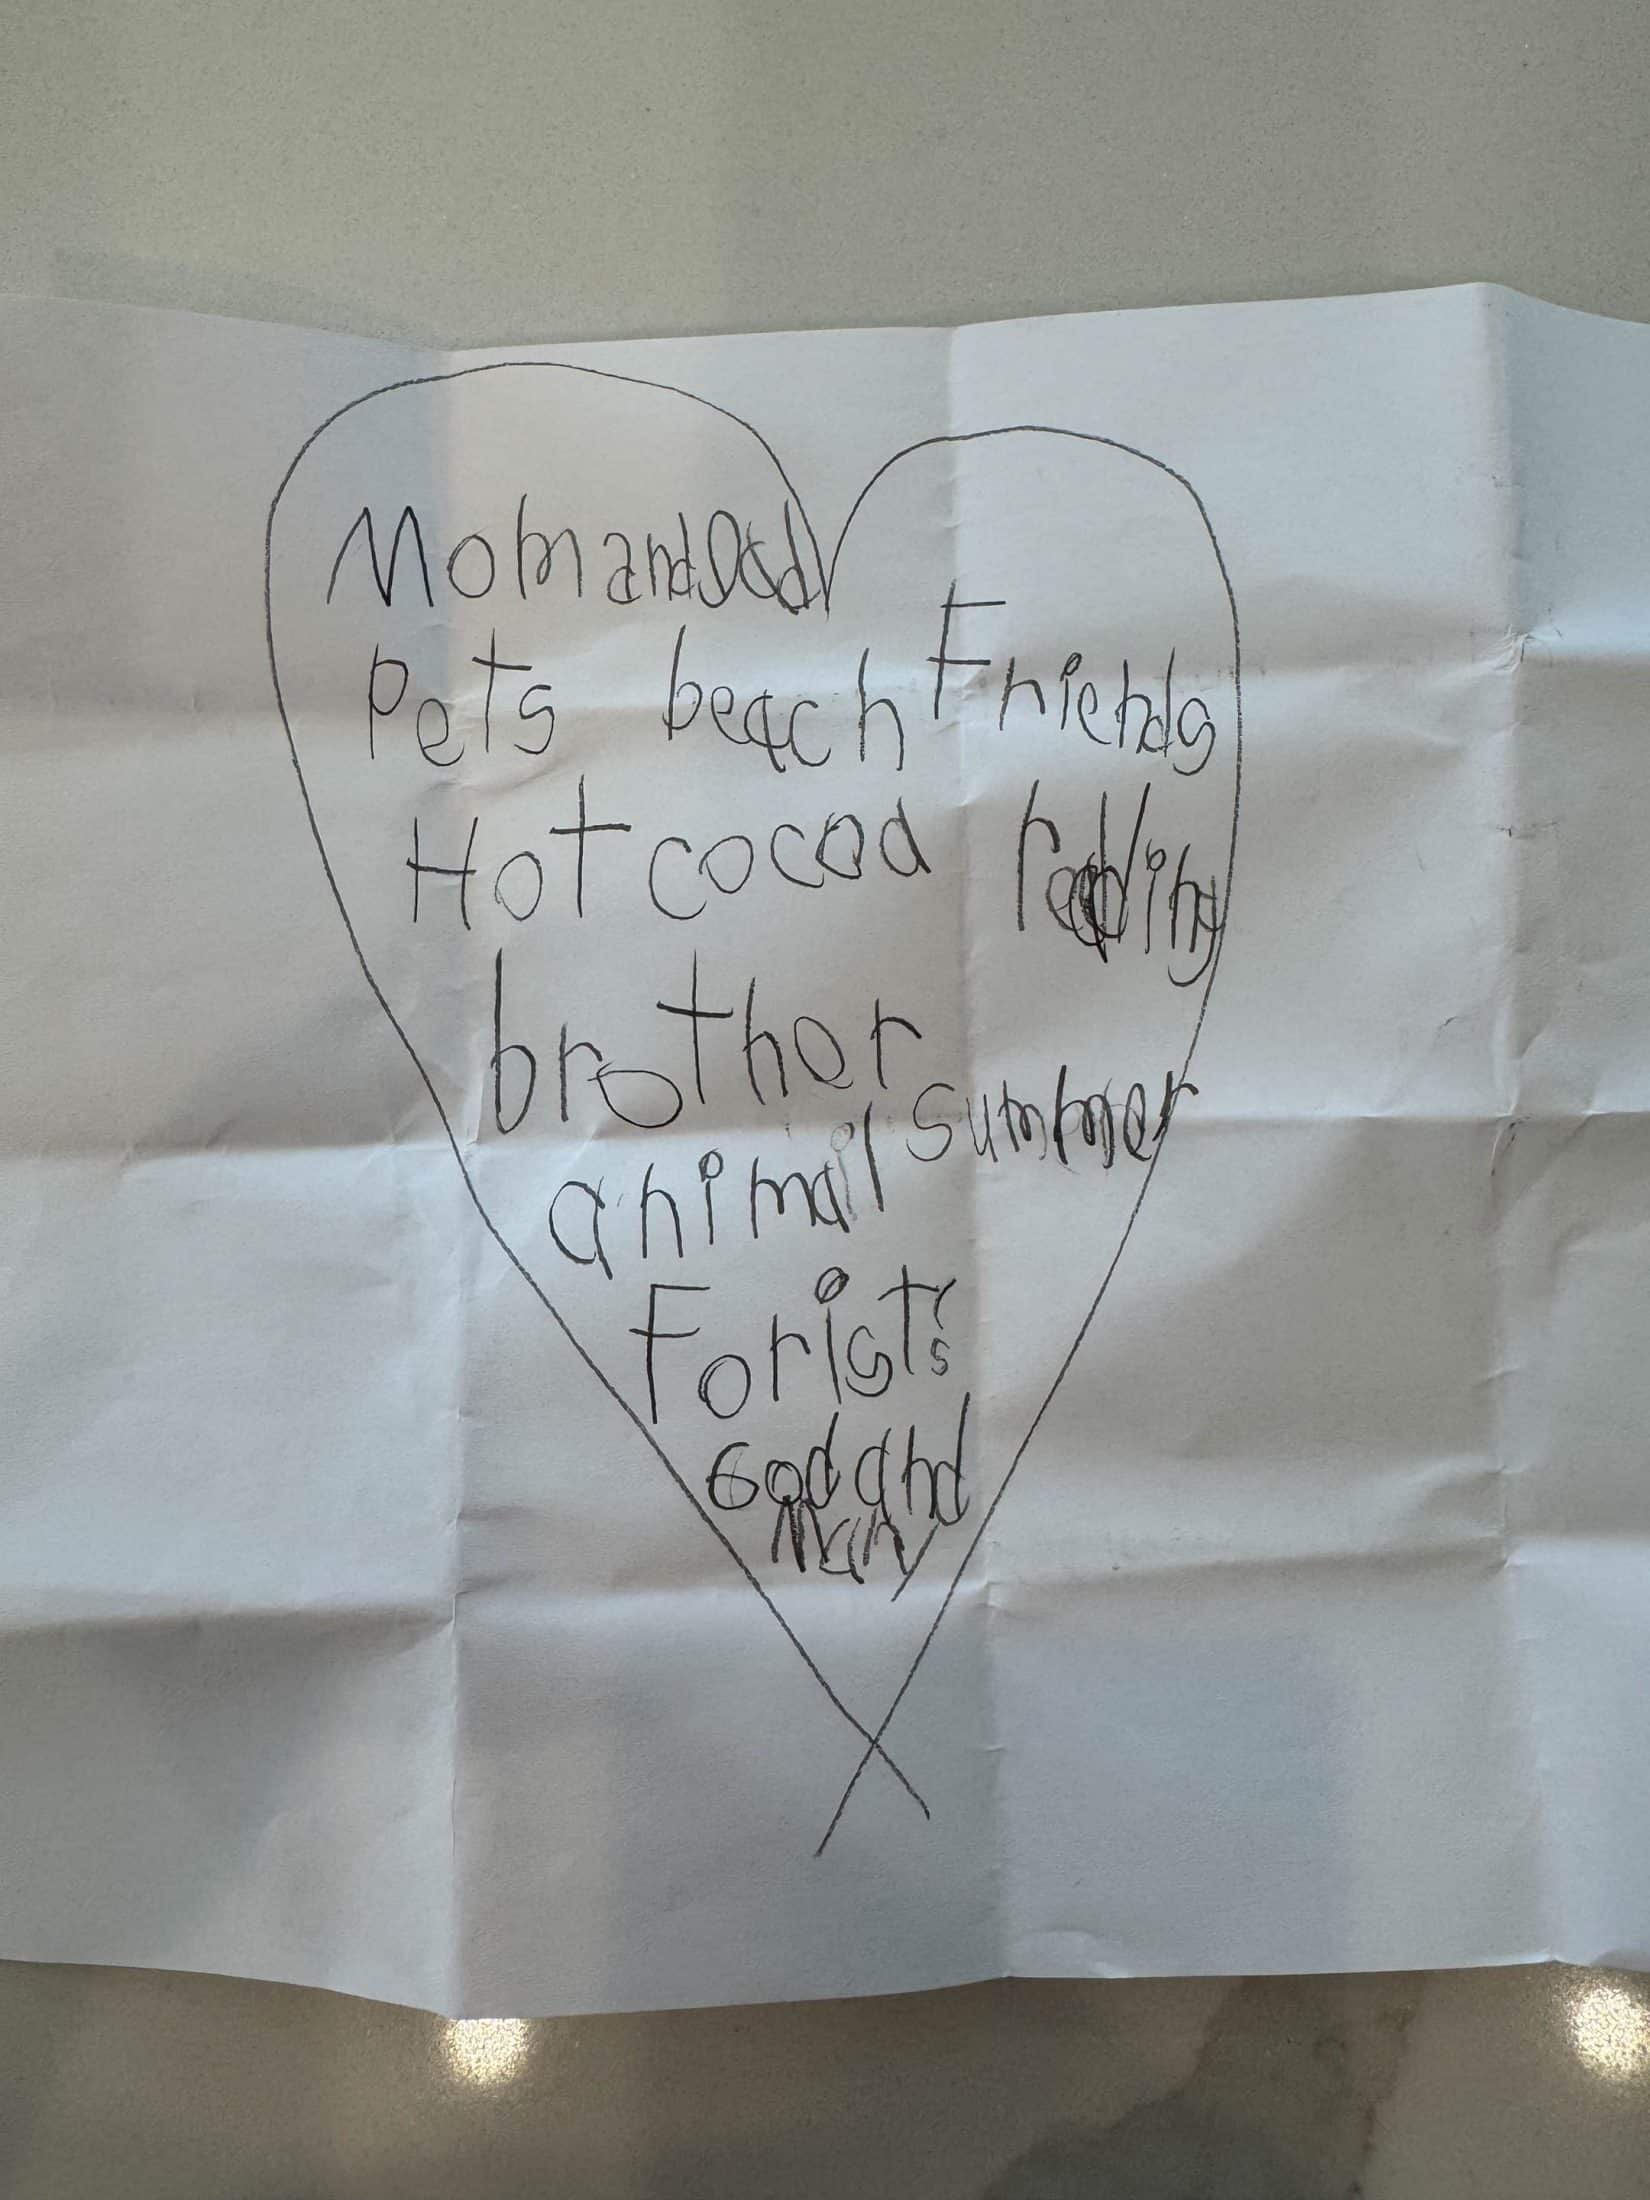 Mom and Dad
Pets beach Friends
Hot cocoa reading
brother
animal summer
Forist's
God and